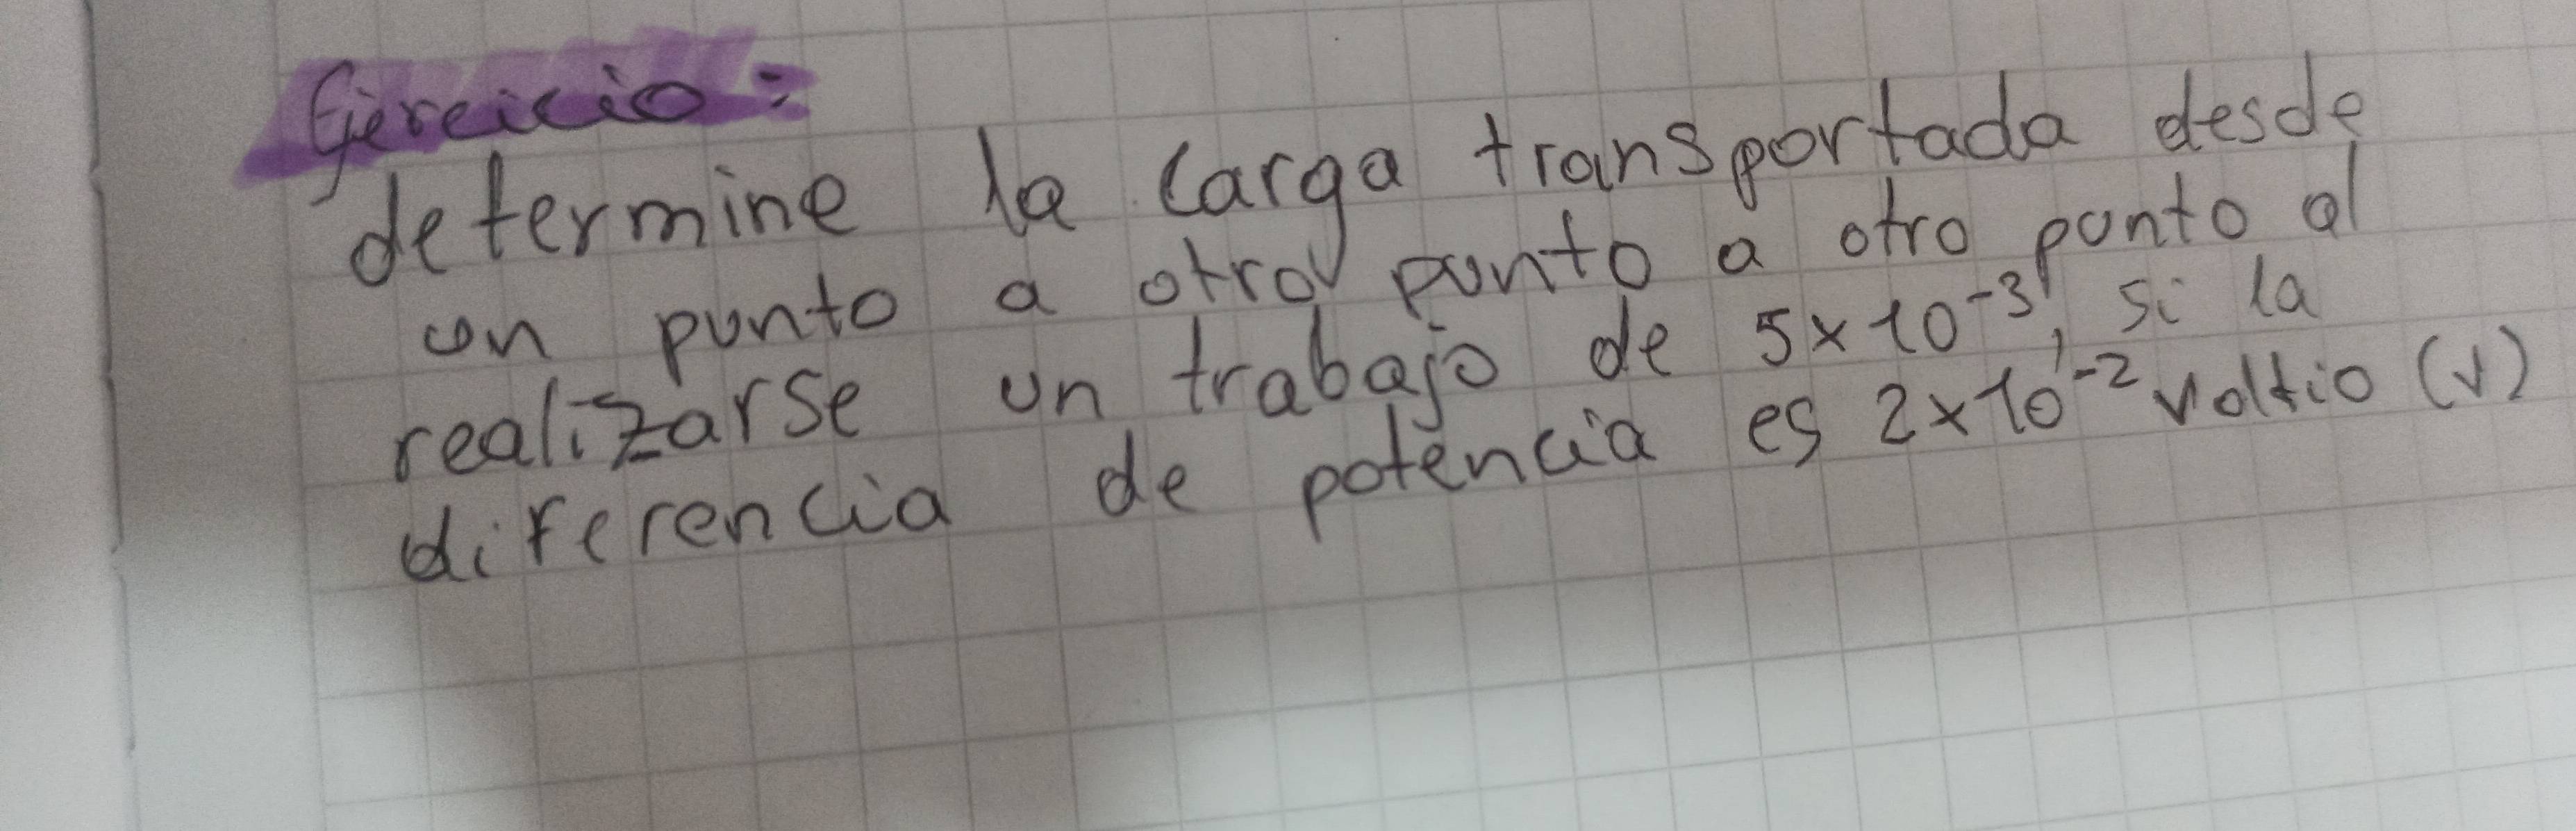 Ejercicio:
determine la carga transportada desde
un punto a otro punto a otro punto al
realizarse un trabajo de 5x10⁻³, si la
diferencia de potencia es 2x10⁻² voltio (v)